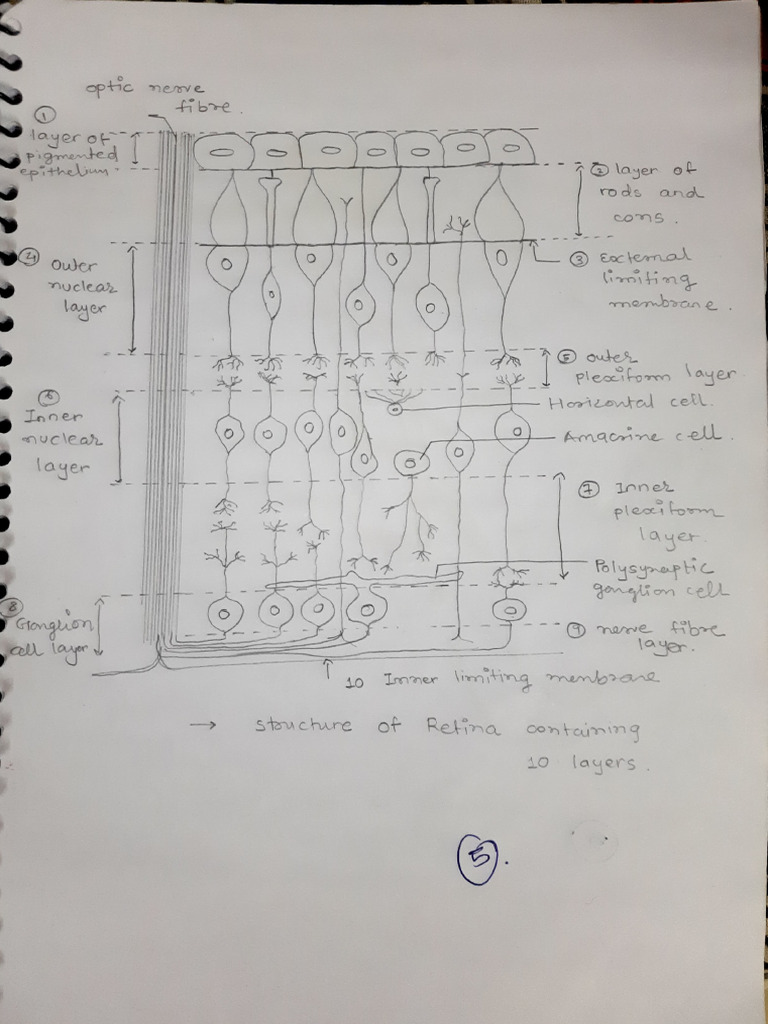 optic nerve
fibre.
①
layer of
pigmented
epithelium.
② layer of
rods and
cons.
③ External
limiting
membrane.
④ Outer
nuclear
layer
⑤ outer
plexiform layer.
Horizontal cell.
⑥
Inner
nuclear
layer
Amacrine cell.
⑦ Inner
plexiform
layer.
Polysynaptic
ganglion cell
⑧
Ganglion
cell layer
⑨ nerve fibre
layer.
10 Inner limiting menbrane
→ structure of Retina containing
10 layers.
5.